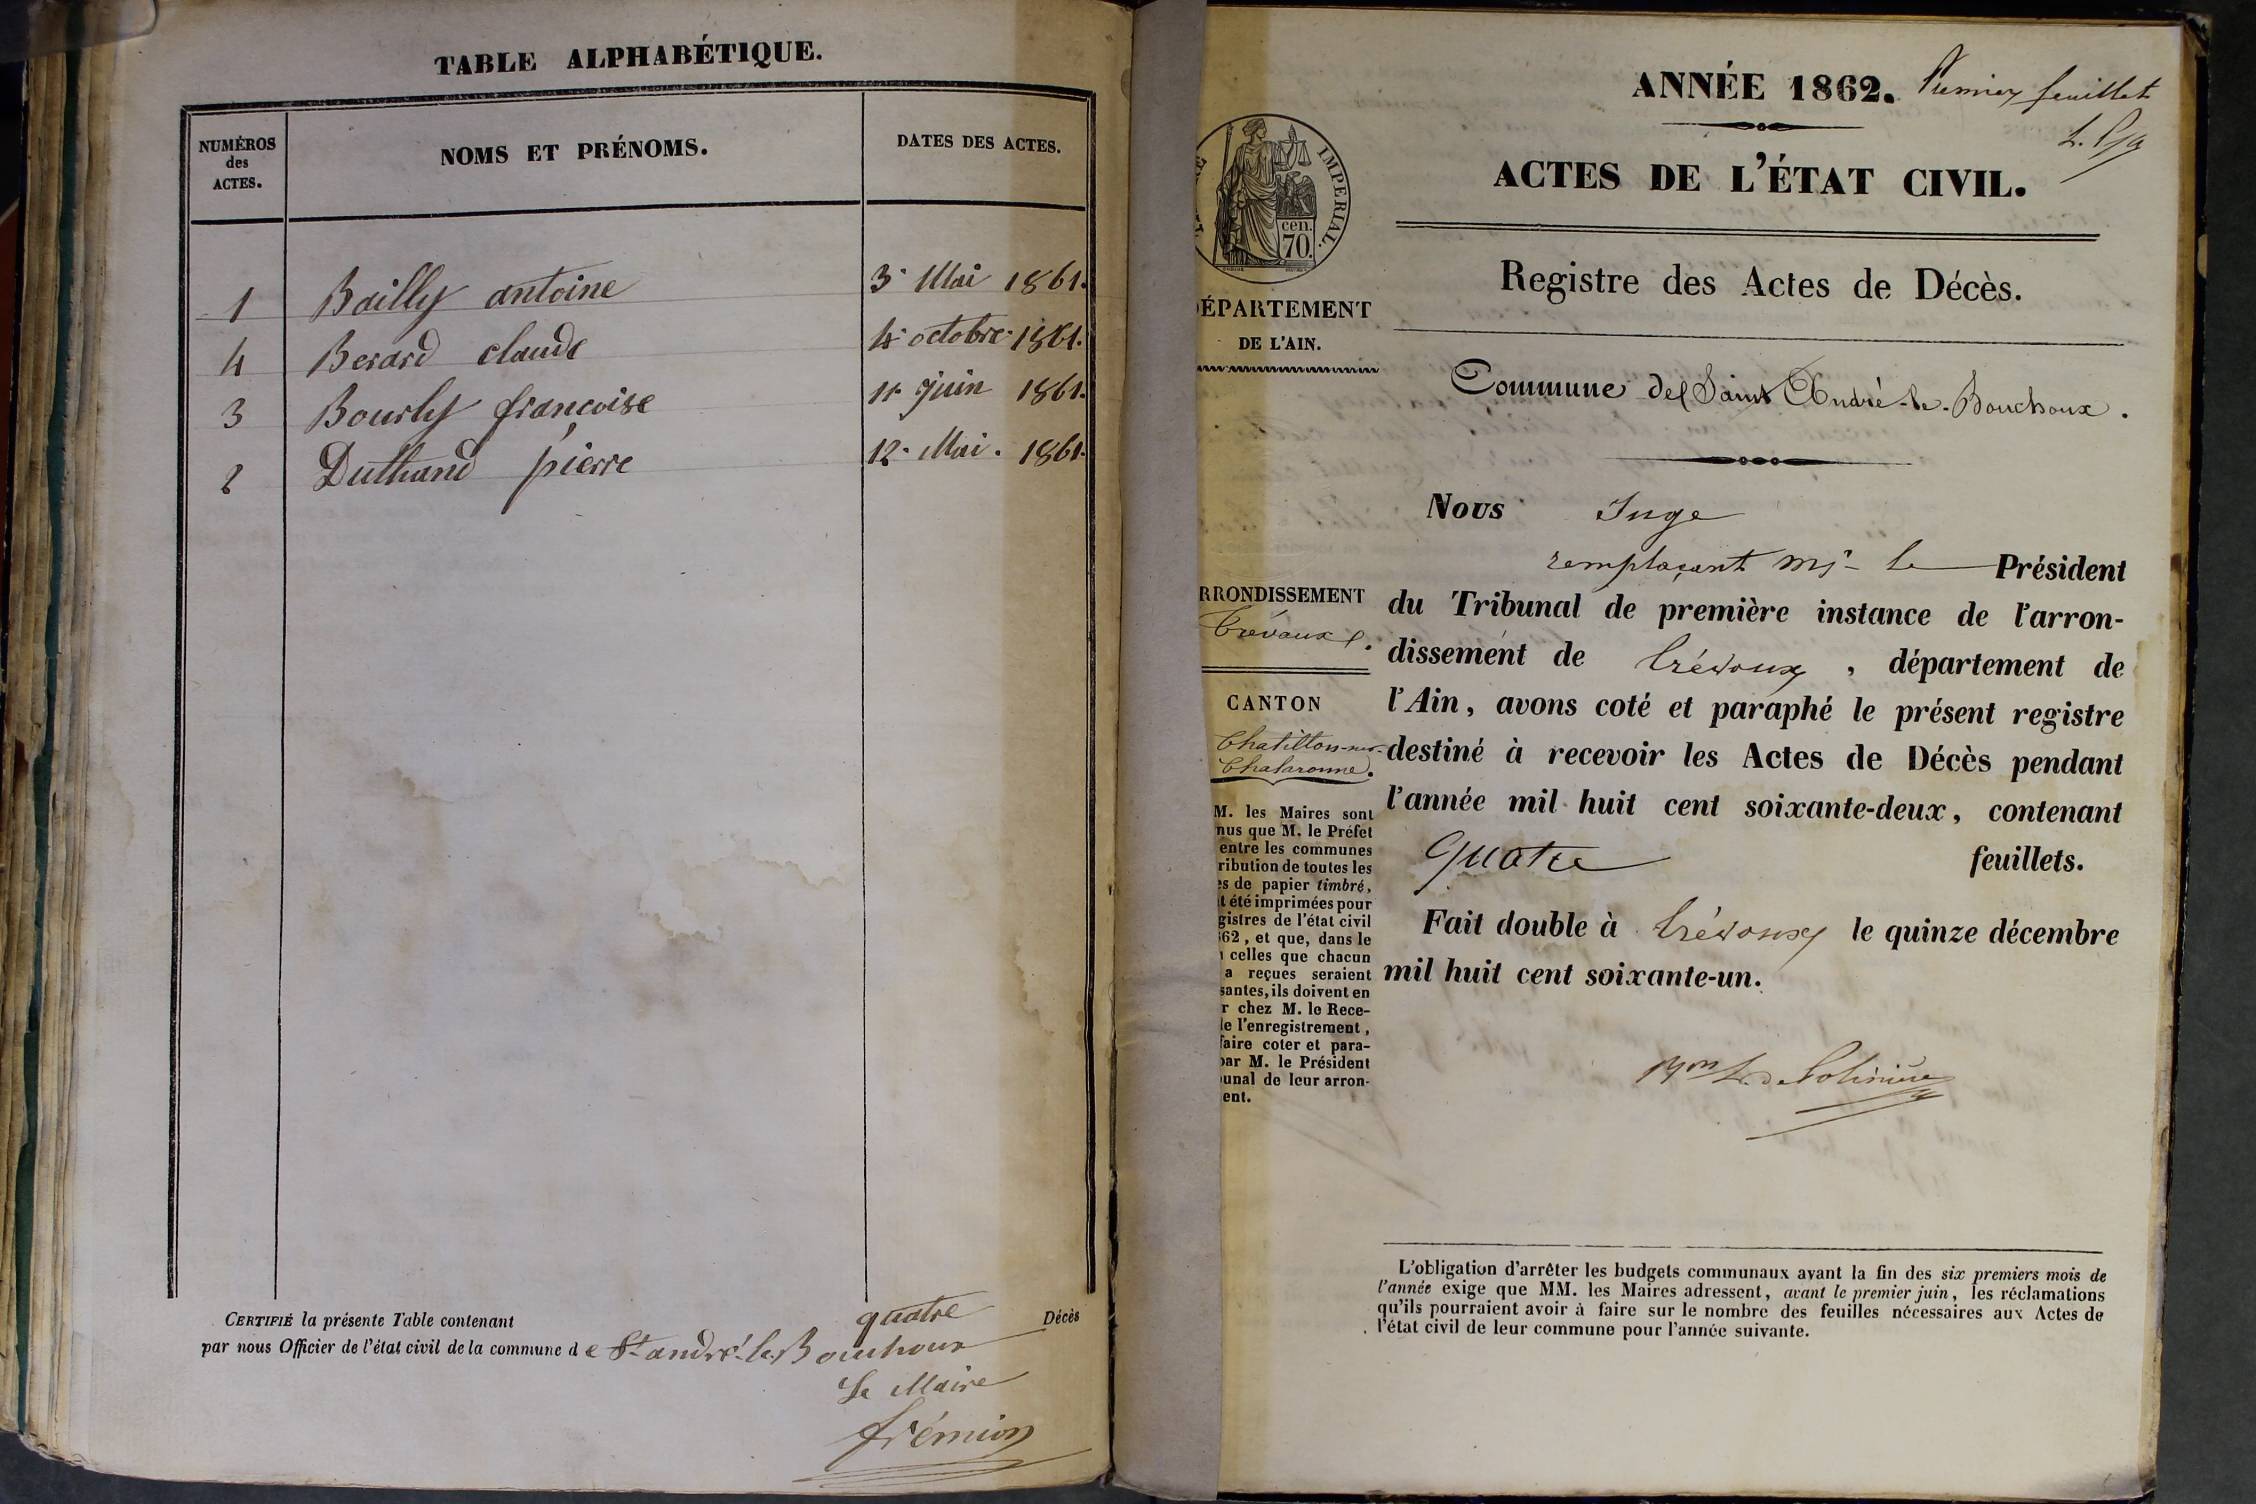 TABLE ALPHABÉTIQUE.
NUMÉROS
des
ACTES.
NOMS ET PRÉNOMS.
DATES DES ACTES.
1 Bailly antoine 3. Mai 1861.
4 Berard claude 4. octobre. 1861.
3 Bourly francoise 11. juin 1861.
2 Duthand pierre 12. Mai. 1861.
CERTIFIÉ la présente Table contenant quatre Décès
par nous Officier de l'état civil de la commune de St andré-le-Bouchoux
Le Maire
frémion
ANNÉE 1862. Premier feuillet
ACTES DE L'ÉTAT CIVIL.
IMPERIAL.
cen.
70.
Registre des Actes de Décès.
ÉPARTEMENT
DE L'AIN.
Commune de Saint André-le-Bouchoux.
Nous Juge
remplaçant mr le Président
du Tribunal de première instance de l'arron-
dissement de Trévoux, département de
l'Ain, avons coté et paraphé le présent registre
destiné à recevoir les Actes de Décès pendant
l'année mil huit cent soixante-deux, contenant
Quatre feuillets.
Fait double à Trévoux le quinze décembre
mil huit cent soixante-un.
RRONDISSEMENT
Trévoux.
CANTON
Chatillon-sur-
Chalaronne.
M. les Maires sont
nus que M. le Préfet
entre les communes
ribution de toutes les
es de papier timbré,
t été imprimées pour
gistres de l'état civil
62, et que, dans le
celles que chacun
a reçues seraient
santes, ils doivent en
r chez M. le Rece-
le l'enregistrement,
faire coter et para-
par M. le Président
unal de leur arron-
ent.
L'obligation d'arrêter les budgets communaux avant la fin des six premiers mois de
l'année exige que MM. les Maires adressent, avant le premier juin, les réclamations
qu'ils pourraient avoir à faire sur le nombre des feuilles nécessaires aux Actes de
l'état civil de leur commune pour l'année suivante.